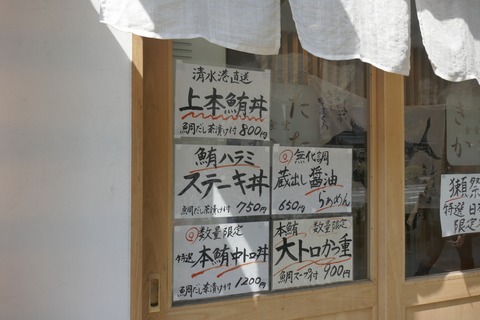 清水港直送
上本鮪丼
鯛だし茶漬け付 800円
鮪ハラミ
ステーキ丼
鯛だし茶漬け付 750円
無化調
蔵出し醤油
らぁめん
650円
数量限定
特選 本鮪中トロ丼
鯛だし茶漬け付 1200円
本鮪 数量限定
大トロかつ重
鯛スープ付 900円
獺祭
特選 日本
限定